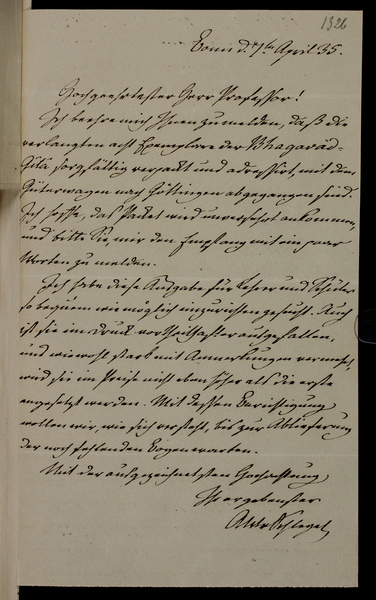 1326
Bonn d. 7ten April 35.
Hochgeehrtester Herr Professor!
Ich beehre mich Ihnen zu melden, daß die
verlangten acht Exemplare der Bhagavad-
Gita sorgfältig verpackt und adressirt, mit dem
Güterwagen nach Göttingen abgegangen sind.
Ich hoffe, das Packet wird unversehrt ankommen,
und bitte Sie, mir den Empfang mit ein paar
Worten zu melden.
Ich habe diese Ausgabe für Lehrer und Schüler
so bequem wie möglich einzurichten gesucht. Auch
ist sie im Druck vortheilhafter ausgefallen,
und wiewohl stark mit Anmerkungen vermehrt,
wird sie im Preise nicht eben höher als die erste
angesetzt werden. Mit dessen Berichtigung
wollen wir, wie sich versteht, bis zur Ablieferung
der noch fehlenden Bogen warten.
Mit der ausgezeichnetsten Hochachtung
Ihr ergebenster
AWvSchlegel